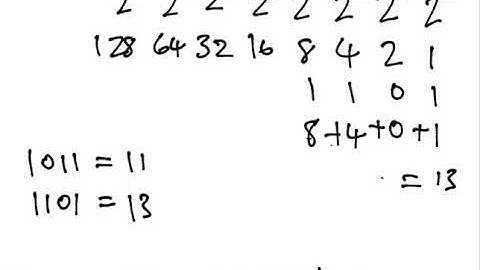 2 2 2 2 2 2 2 2
128 64 32 16 8 4 2 1
1 1 0 1
8+4+0+1
1011 = 11
= 13
1101 = 13